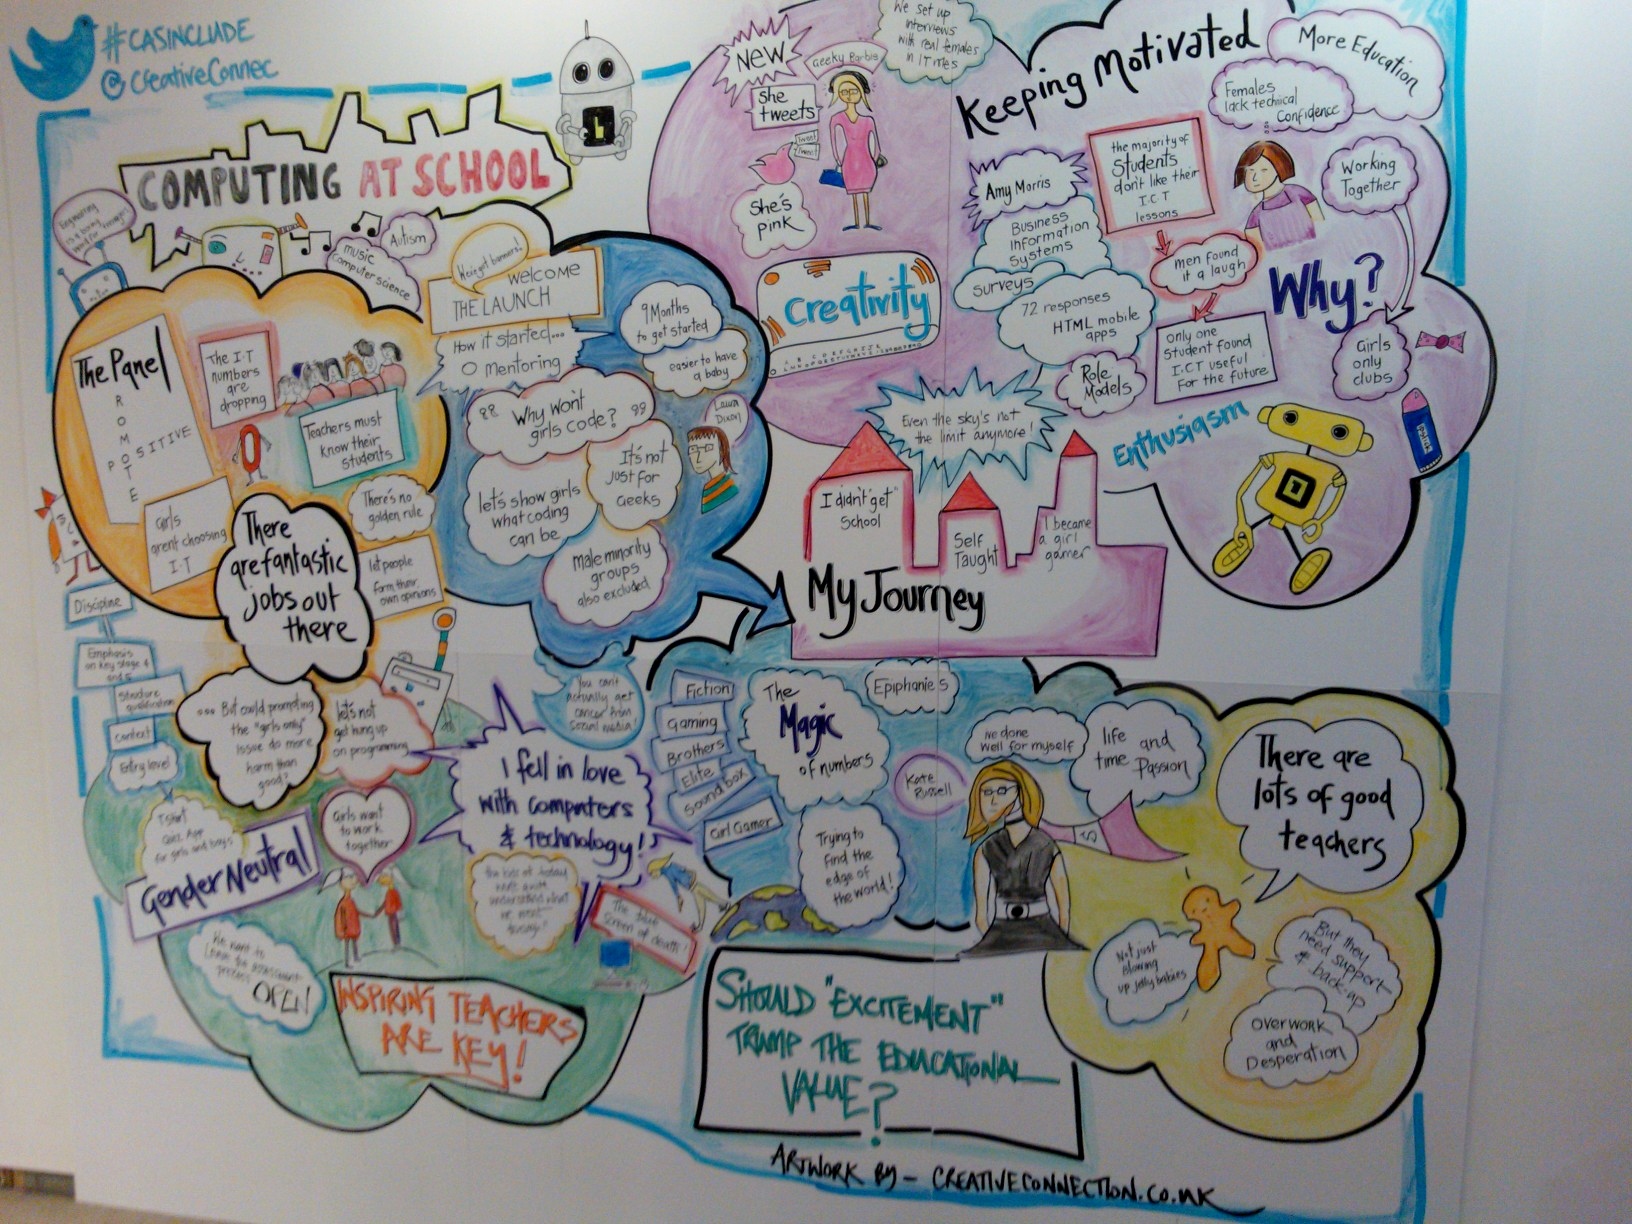 #CASINCLUDE
@CreativeConnec
COMPUTING AT SCHOOL
music
computer science
Autism
The Panel
PROMOTE
POSITIVE
The I.T
numbers
are
dropping
Teachers must
know their
students
Girls
arent choosing
I.T
There's no
golden rule
let people
form their
own opinions
There
are fantastic
jobs out
there
.... But could promoting
the "girls only"
issue do more
harm than
good?
let's not
get hung up
on programming
Discipline
Emphasis
on key stage 4
and 5
Structure
qualification
context
Entry level
T shirt
Quiz App
for girls and boys
Gender Neutral
Girls want
to work
together
OPEN!
INSPIRING TEACHERS
ARE KEY!
We've got banners!
WELCOME
THE LAUNCH
How it started...
O mentoring
9 Months
to get started
easier to have
a baby
Laura
Dixon
"Why won't
girls code?"
let's show girls
what coding
can be
It's not
just for
Geeks
male minority
groups
also excluded
You can't
actually get
cancer from
social media!
I fell in love
with computers
& technology!
The blue
screen of death!
NEW
Geeky Barbie
We set up
interviews
with real females
in IT roles
She
tweets
tweet
tweet
She's
pink
Creativity
Keeping Motivated
More Education
Females
lack technical
Confidence
Working
Together
Amy Morris
Business
Information
Systems
Surveys
72 responses
HTML mobile
apps
the majority of
students
don't like their
I.C.T
lessons
men found
it a laugh
only one
student found
I.C.T useful
for the future
Role
Models
Why?
Girls
only
clubs
Enthusiasm
Even the sky's not
the limit anymore!
I didn't "get"
School
Self
Taught
I became
a girl
gamer
My Journey
Fiction
Gaming
Brothers
Elite
Sound box
Girl Gamer
The
Magic
of numbers
Epiphanies
Kate
Russell
I've done
well for myself
life and
time Passion
Trying to
find the
edge of
the world!
There are
lots of good
teachers
Not just
blowing
up jelly babies
But they
need support
& back-up
Overwork
and
Desperation
SHOULD "EXCITEMENT"
TRUMP THE EDUCATIONAL
VALUE?
ARTWORK BY - CREATIVECONNECTION.CO.UK